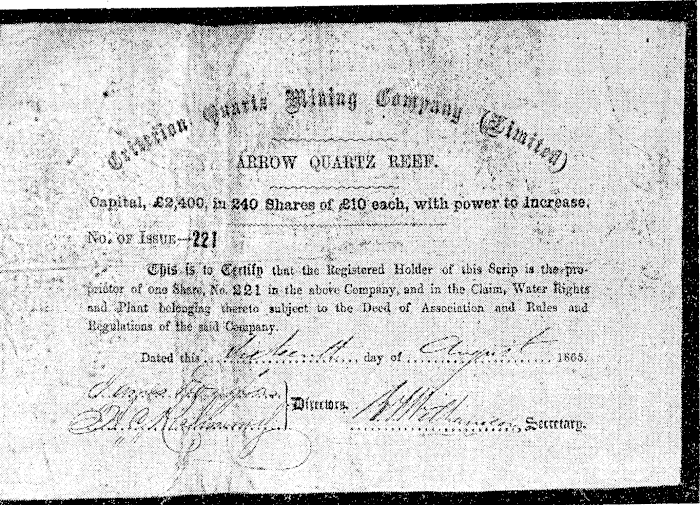 Criterion Quartz Mining Company (Limited)
ARROW QUARTZ REEF.
Capital, £2,400, in 240 Shares of £10 each, with power to Increase.
No. OF ISSUE—221
This is to Certify that the Registered Holder of this Scrip is the pro-
prietor of one Share, No. 221 in the above Company, and in the Claim, Water Rights
and Plant belonging thereto subject to the Deed of Association and Rules and
Regulations of the said Company.
Dated this Sixteenth day of August 1865.
James
Directors.
Williamson, Secretary.